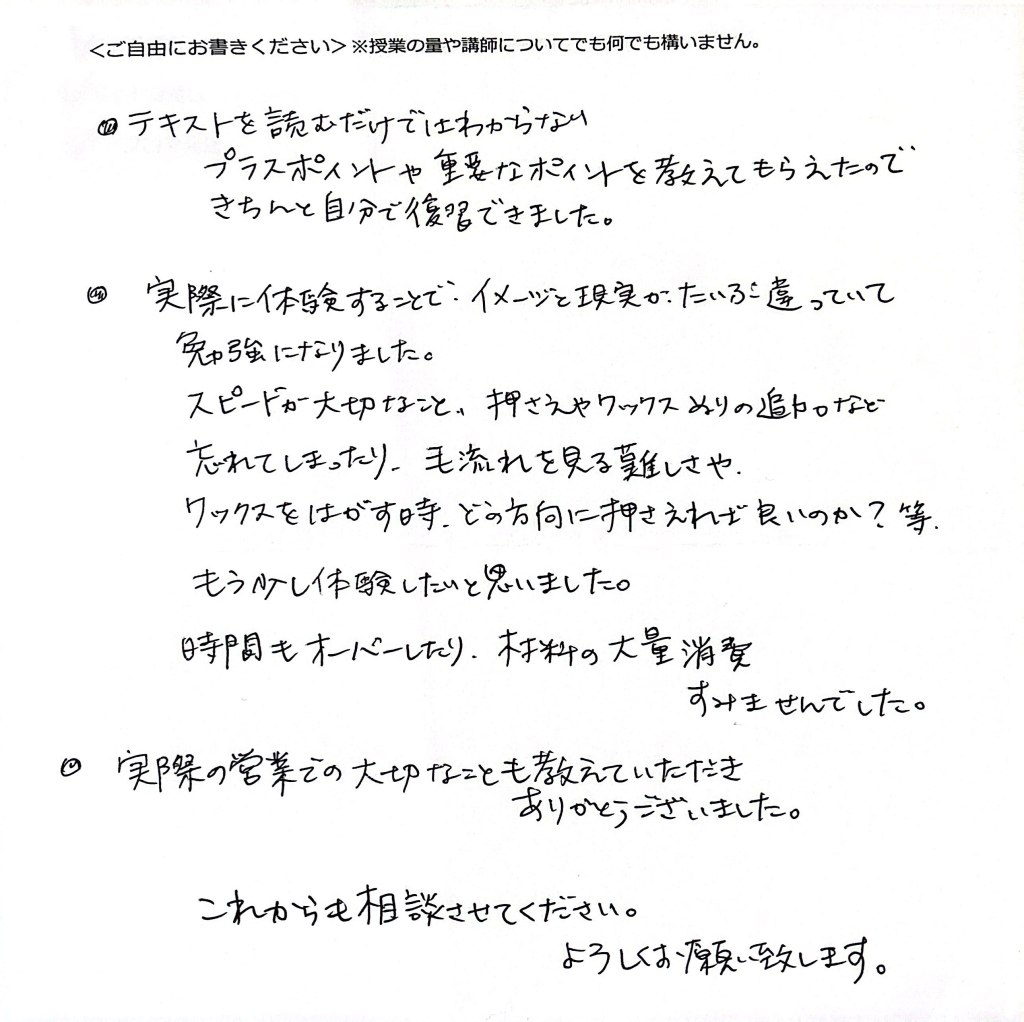 <ご自由にお書きください>※授業の量や講師についてでも何でも構いません。
テキストを読むだけではわからない
プラスポイントや重要なポイントを教えてもらえたので
きちんと自分で復習できました。
実際に体験することで、イメージと現実が、だいぶ違っていて
勉強になりました。
スピードが大切なこと、押さえやワックスぬりの追加など
忘れてしまったり、毛流れを見る難しさや、
ワックスをはがす時、どの方向に押さえれば良いのか?等、
もう少し体験したいと思いました。
時間もオーバーしたり、材料の大量消費
すみませんでした。
実際の営業での大切なことも教えていただき
ありがとうございました。
これからも相談させてください。
よろしくお願い致します。